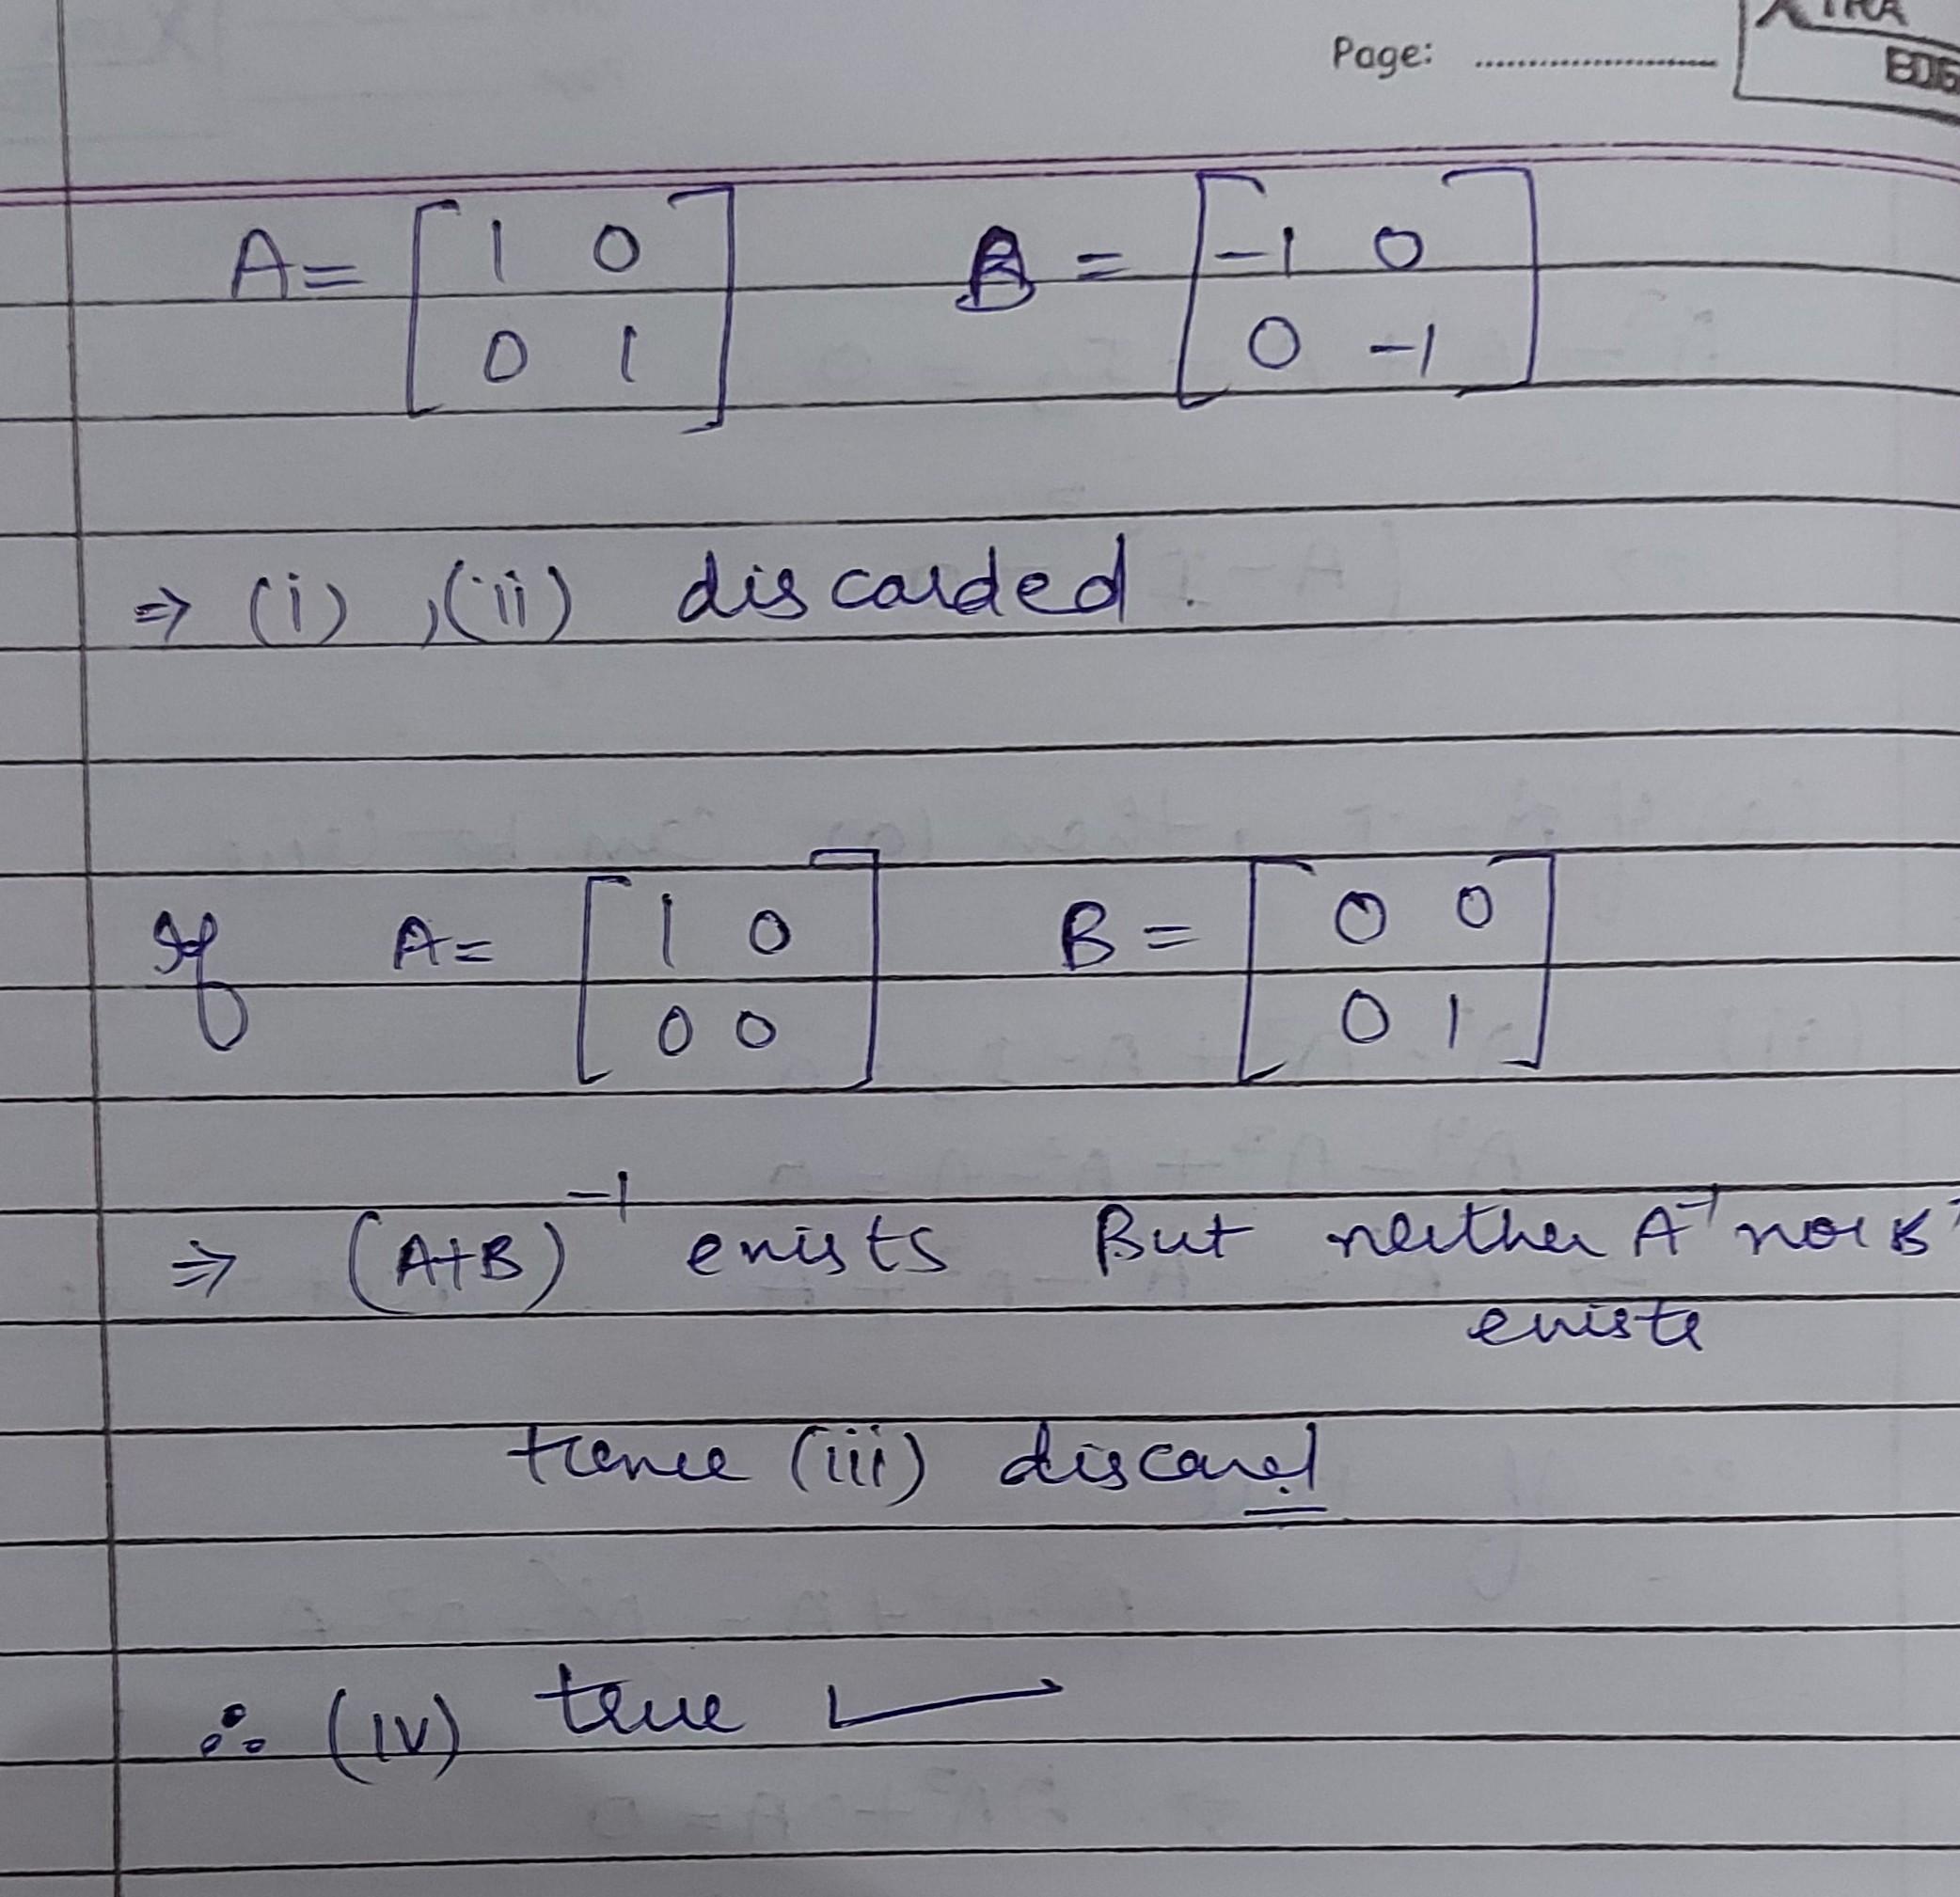 Page: ..................
XTRA
EDG
A = [ 1 0 B = [ -1 0
0 1 ] 0 -1 ]
⇒ (i) , (ii) discarded .
If A = [ 1 0 B = [ 0 0
0 0 ] 0 1 ]
⇒ (A+B)⁻¹ exists But neither A⁻¹ nor B⁻¹
exists
Hence (iii) discard
∴ (iv) true ✓